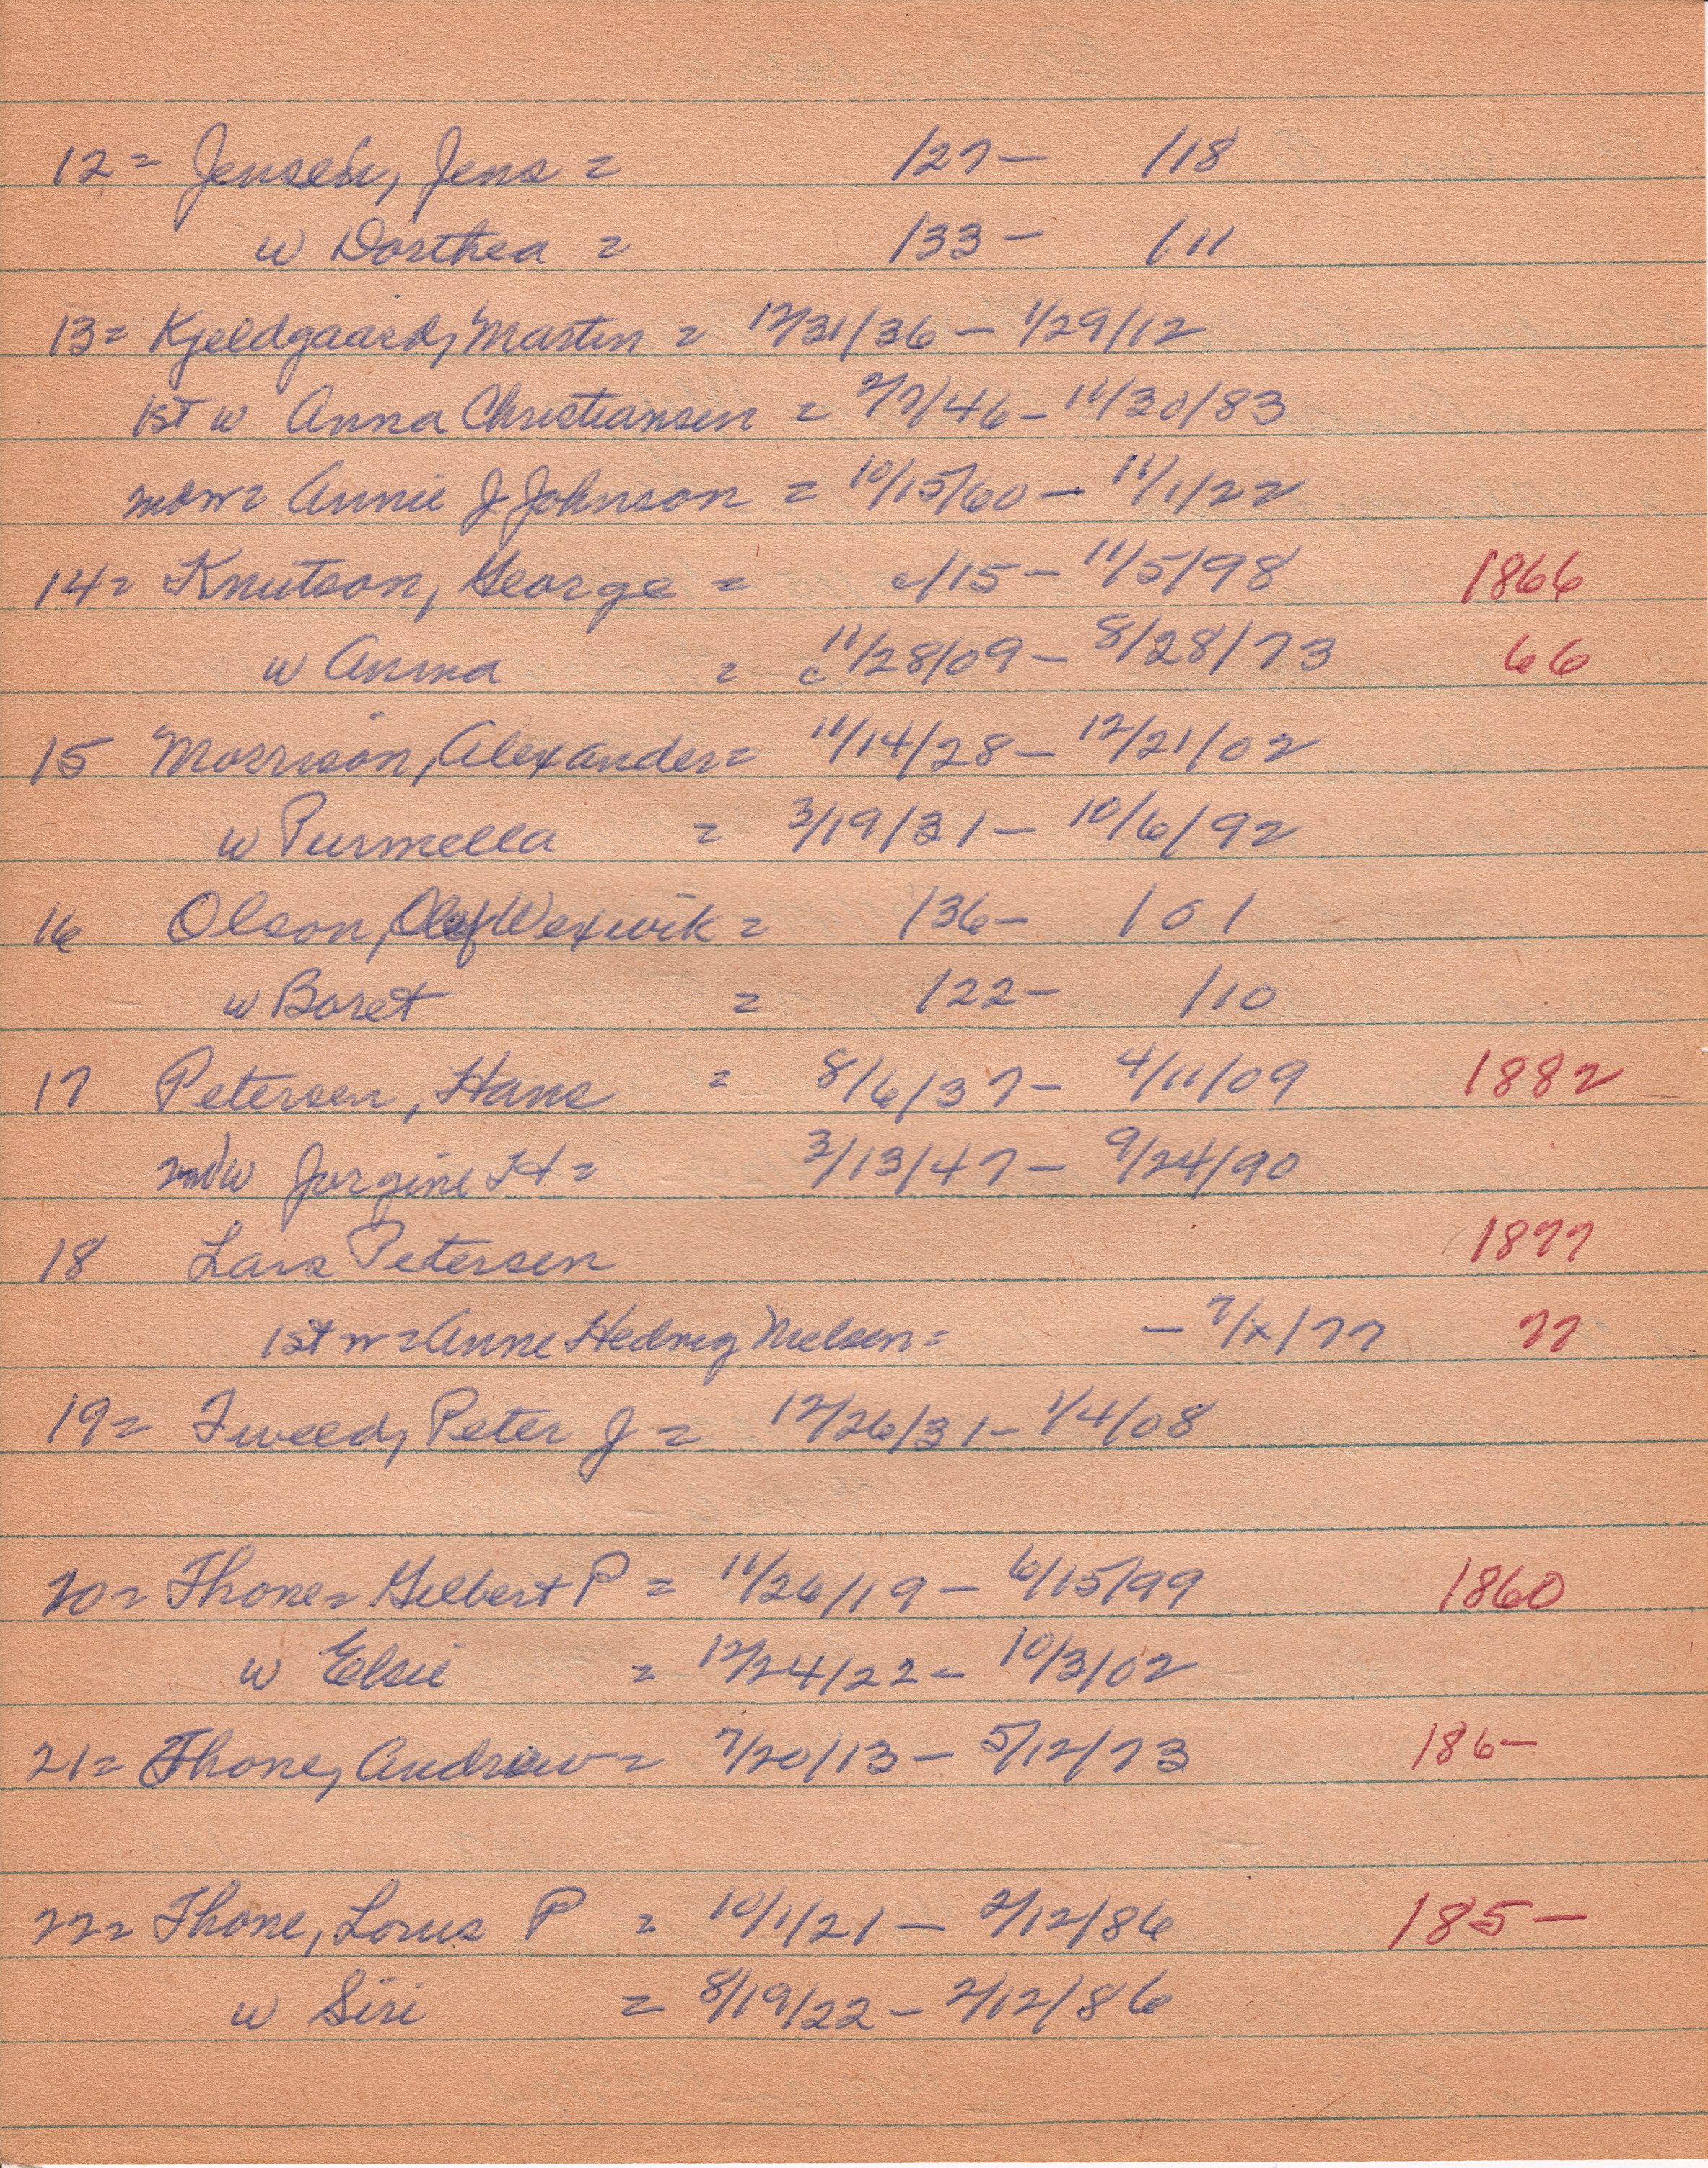 12 = Jensen, Jens = /27 — /18
w Dorthea = /33 — /11
13 = Kjeldgaard, Martin = 12/31/36 — 1/29/12
1st w Anna Christiansen = 2/7/46 — 11/30/83
Annie J Johnson = 10/15/60 — 11/1/22
14 = Knutson, George = c/15 — 11/5/98 1866
w Anna = c 11/28/09 — 8/28/73 66
15 Morrison, Alexander = 11/14/28 — 12/21/02
w Purmella = 3/19/31 — 10/6/92
16 Olson, Olef Wexwik = /36 — /01
w Boret = /22 — /10
17 Petersen, Hans = 8/6/37 — 4/11/09 1882
2nd w Jorgine H = 3/13/47 — 9/24/90
18 Lars Petersen 1877
1st w = Anne Hedvig Nielsen = — 7/x/77 77
19 = Tweed, Peter J = 12/26/31 — 1/4/08
20 = Thone = Gilbert P = 11/26/19 — 6/15/99 1860
w Elsie = 12/24/22 — 10/3/02
21 = Thone, Andrew = 7/20/13 — 5/12/73 186—
22 = Thone, Lorus P = 10/1/21 — 2/12/86 185—
w Siri = 8/19/22 — 2/12/86